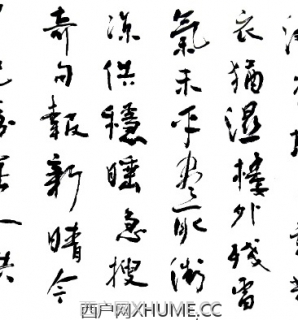 衣猶濕樓外殘雷
氣未平盡取微
涼供穩睡急搜
奇句報新晴今
人共
西户网XHUME.CC